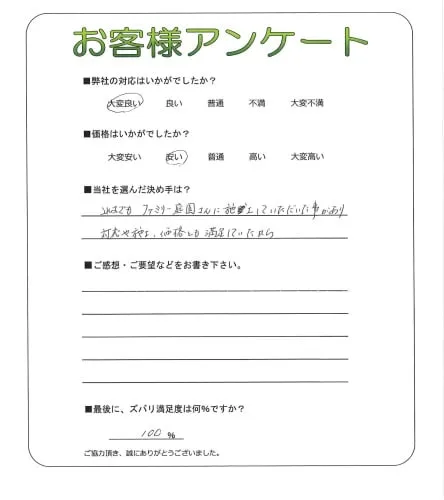 お客様アンケート
■弊社の対応はいかがでしたか？
大変良い 良い 普通 不満 大変不満
■価格はいかがでしたか？
大変安い 安い 普通 高い 大変高い
■当社を選んだ決め手は？
これまでも ファミリー庭園さんに施工していただいた事があり
対応や施工、価格も満足していたから
■ご感想・ご要望などをお書き下さい。
■最後に、ズバリ満足度は何%ですか？
100 %
ご協力頂き、誠にありがとうございました。